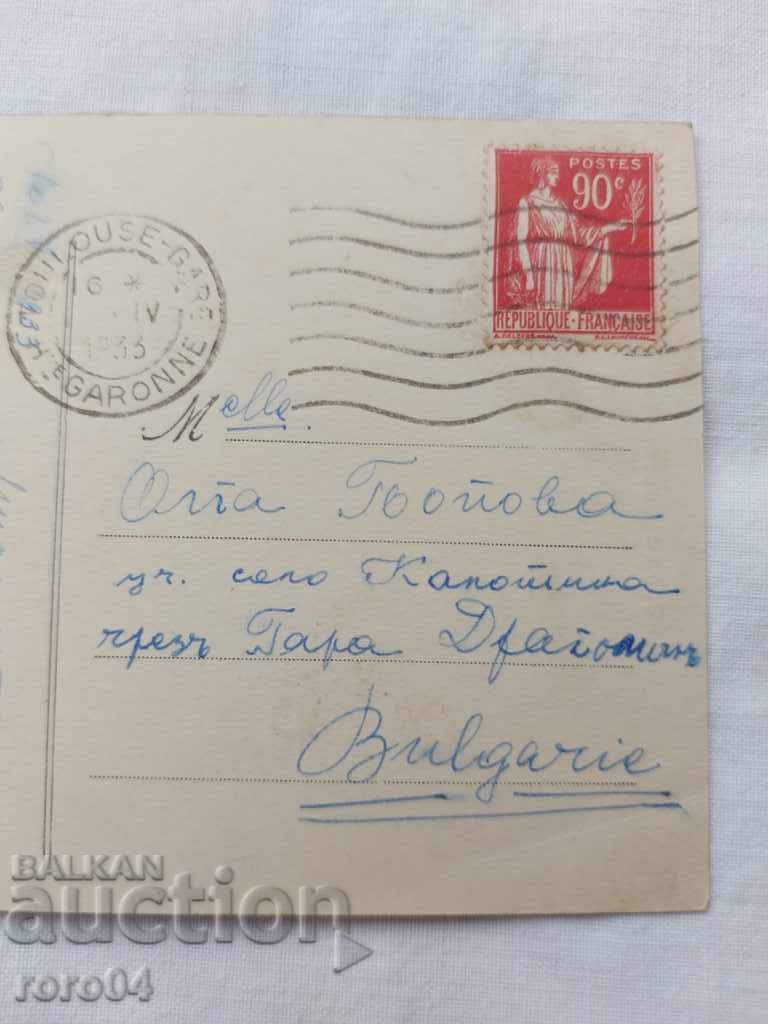 POSTES
90c
REPUBLIQUE·FRANÇAISE
OUSE-GARE
16 *
IV
1933
GARONNE
Melle.
Попова
уч. село Капотина
чрезъ Гара Драгоманъ
Bulgarie
BALKAN
auction
roro04